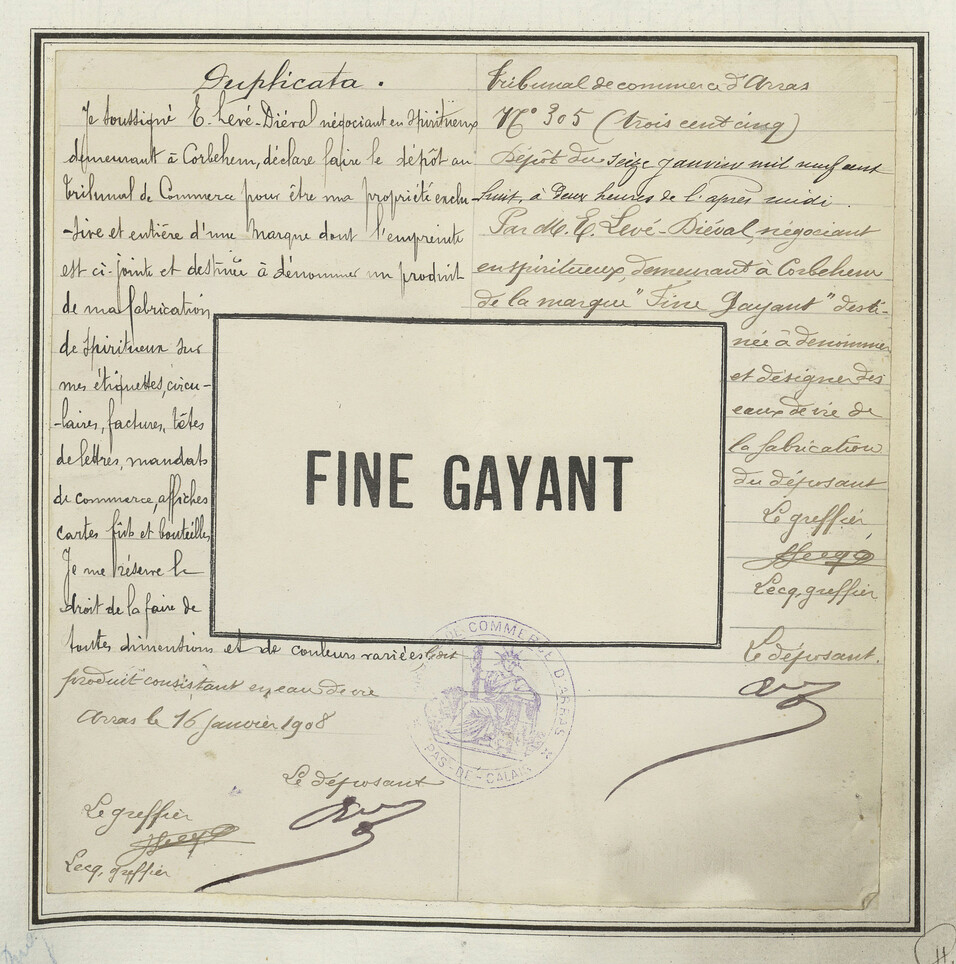 Duplicata.
Je soussigné E. Levé-Diéval négociant en Spiritueux
demeurant à Corbehem, déclare faire le dépôt au
tribunal de Commerce pour être ma propriété exclu-
-sive et entière d'une Marque dont l'empreinte
est ci-jointe et destinée à dénommer un produit
de ma fabrication
de Spiritueux sur
mes étiquettes, circu-
-laires, factures, têtes
de lettres, mandats
de commerce, affiches
cartes fûts et bouteilles
Je me réserve le
droit de la faire de
toutes dimensions et de couleurs variées ledit
produit consistant en eau de vie
Arras le 16 Janvier 1908
Le déposant
Le greffier
Lecq, greffier
Tribunal de commerce d'Arras
N° 305 (trois cent cinq)
Dépôt du seize janvier mil neuf cent
huit, à deux heures de l'après midi.
Par M. E. Levé-Diéval, négociant
en spiritueux, demeurant à Corbehem
de la marque "Fine Gayant" desti-
née à dénommer
et désigner des
eaux de vie de
la fabrication
du déposant
Le greffier
Lecq, greffier
Le déposant.
FINE GAYANT
DE COMMERCE D'ARRAS
PAS-DE-CALAIS
H.